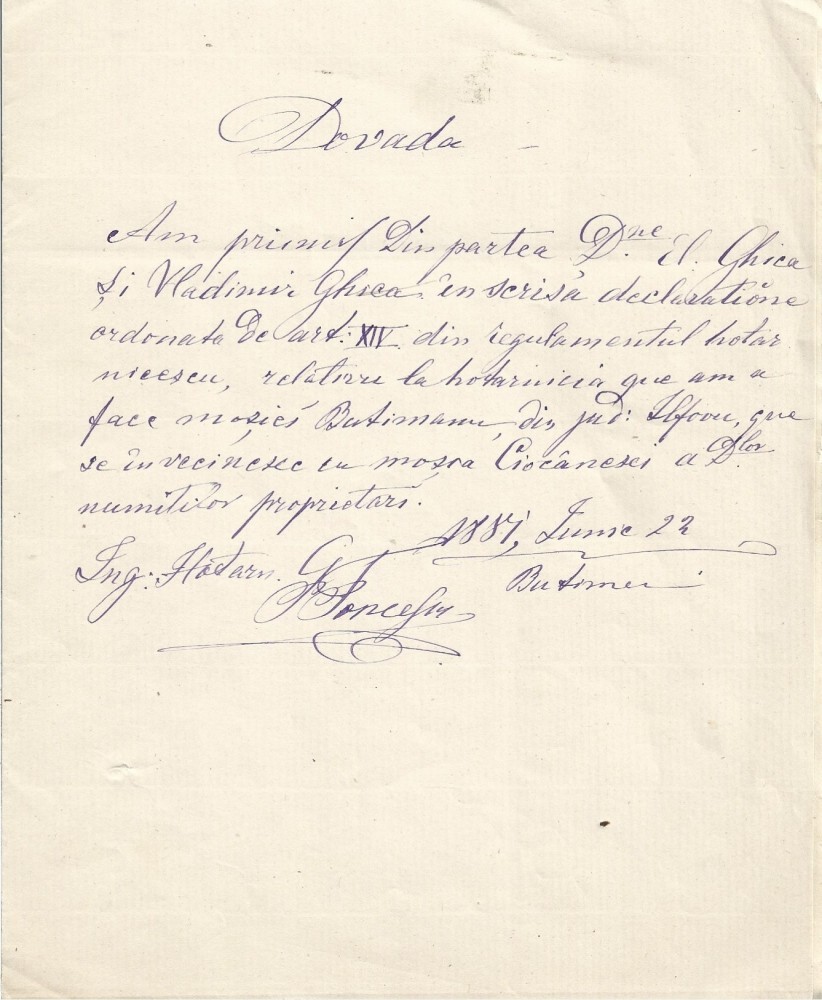 Dovada
Am primit Din partea D.ne El. Ghica
și Vladimir Ghica în scrisă declaratiōne
ordonata de art: XIV. din regulamentul hotar
nicescu, relativu la hotarnicia que am a
face moșiei Butimanu, din jud: Ilfovu, que
se învecinesc cu moșia Ciocânesci a D.lor
numitilor proprietari.
1887, Iunie 23
Ing: Hotarn.
Butimanu